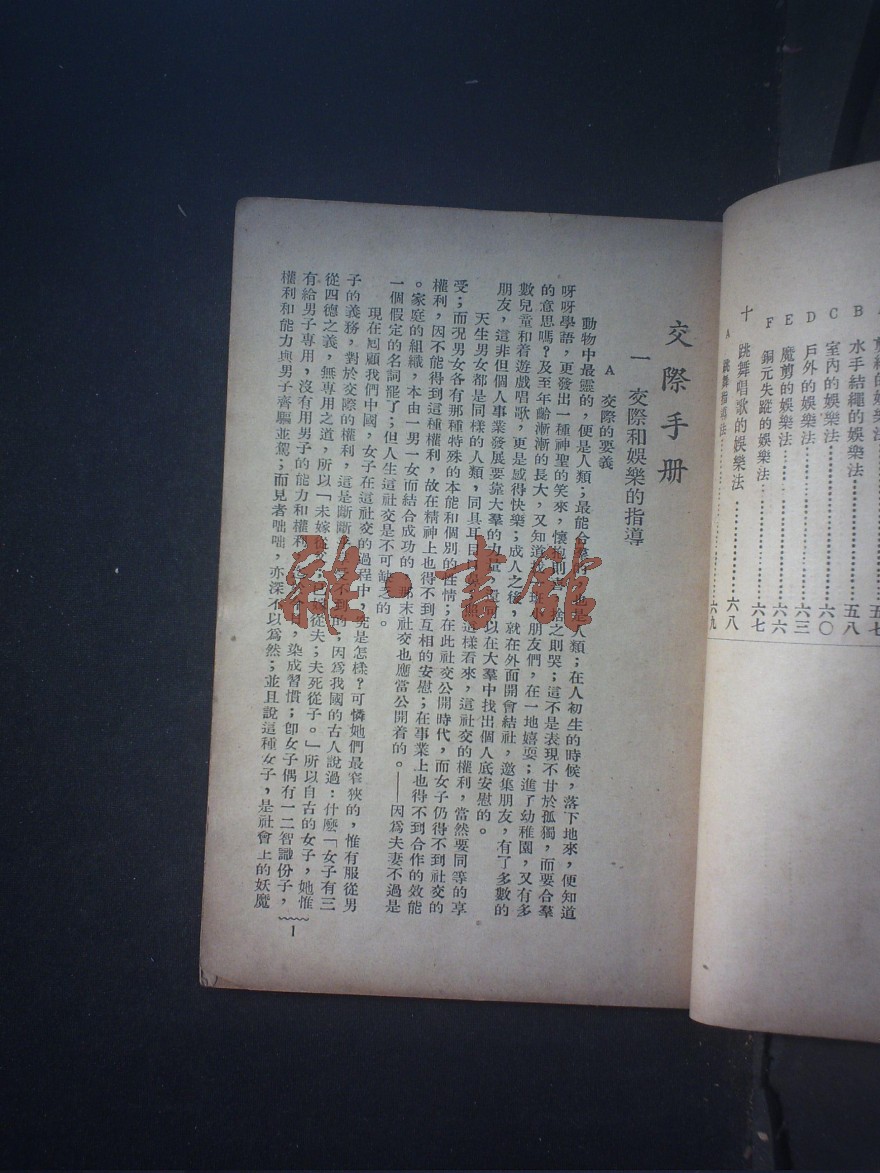 剪紙的娛樂法 五七
B 水手結繩的娛樂法 五八
C 室內的娛樂法 六〇
D 戶外的娛樂法 六三
E 魔剪的娛樂法 六六
F 銅元失蹤的娛樂法 六七
十 跳舞唱歌的娛樂法 六八
A 跳舞指導法 六九
交際手册
一 交際和娛樂的指導
A 交際的要義
動物中最靈的，便是人類；最能合羣 也是人類；在人初生的時候，落下地來，便知道
呀呀學語，更發出一種神聖的笑來，懷抱則 捨之則哭；這不是表現不甘於孤獨，而要合羣
的意思嗎？及至年齡漸漸的長大，又知道 朋友們，在一地嬉耍；進了幼稚園，又有多
數兒童和着遊戲唱歌，更是感得快樂；成人之後，就在外面開會結社，邀集朋友，有了多數的
朋友，這非但個人事業發展要靠大羣的力量， 以在大羣中找出個人底安慰的。
天生男女都是同樣的人類，同具耳目 這樣看來，這社交的權利，當然要同等的享
受；而況男女各有那種特殊的本能和個別的性情；在此社交公開時代，而女子仍得不到社交的
權利，因不能得到這種權利，故在精神上也得不到互相的安慰；在事業上也得不到合作的效能
。家庭的組織，本由一男一女而結合成功的 那末社交也應當公開着的。——因爲夫妻不過是
一個假定的名詞罷了；但人生這社交是不可缺乏的。
現在囘顧我們中國，女子在這社交的過程中，究是怎樣？可憐她們最窄狹的，惟有服從男
子的義務，對於交際的權利，這是斷斷 不到的；因爲我國的古人說過：什麼「女子有三
從四德之義，無專用之道，所以「未嫁從父； 從夫；夫死從子。」所以自古的女子，她惟
有給男子專用，沒有用男子的能力和權利 ，染成習慣；卽女子偶有一二智識份子，
權利和能力與男子齊驅並駕；而見者咄咄，亦深不以爲然；並且說這種女子，是社會上的妖魔
1
雜·書館